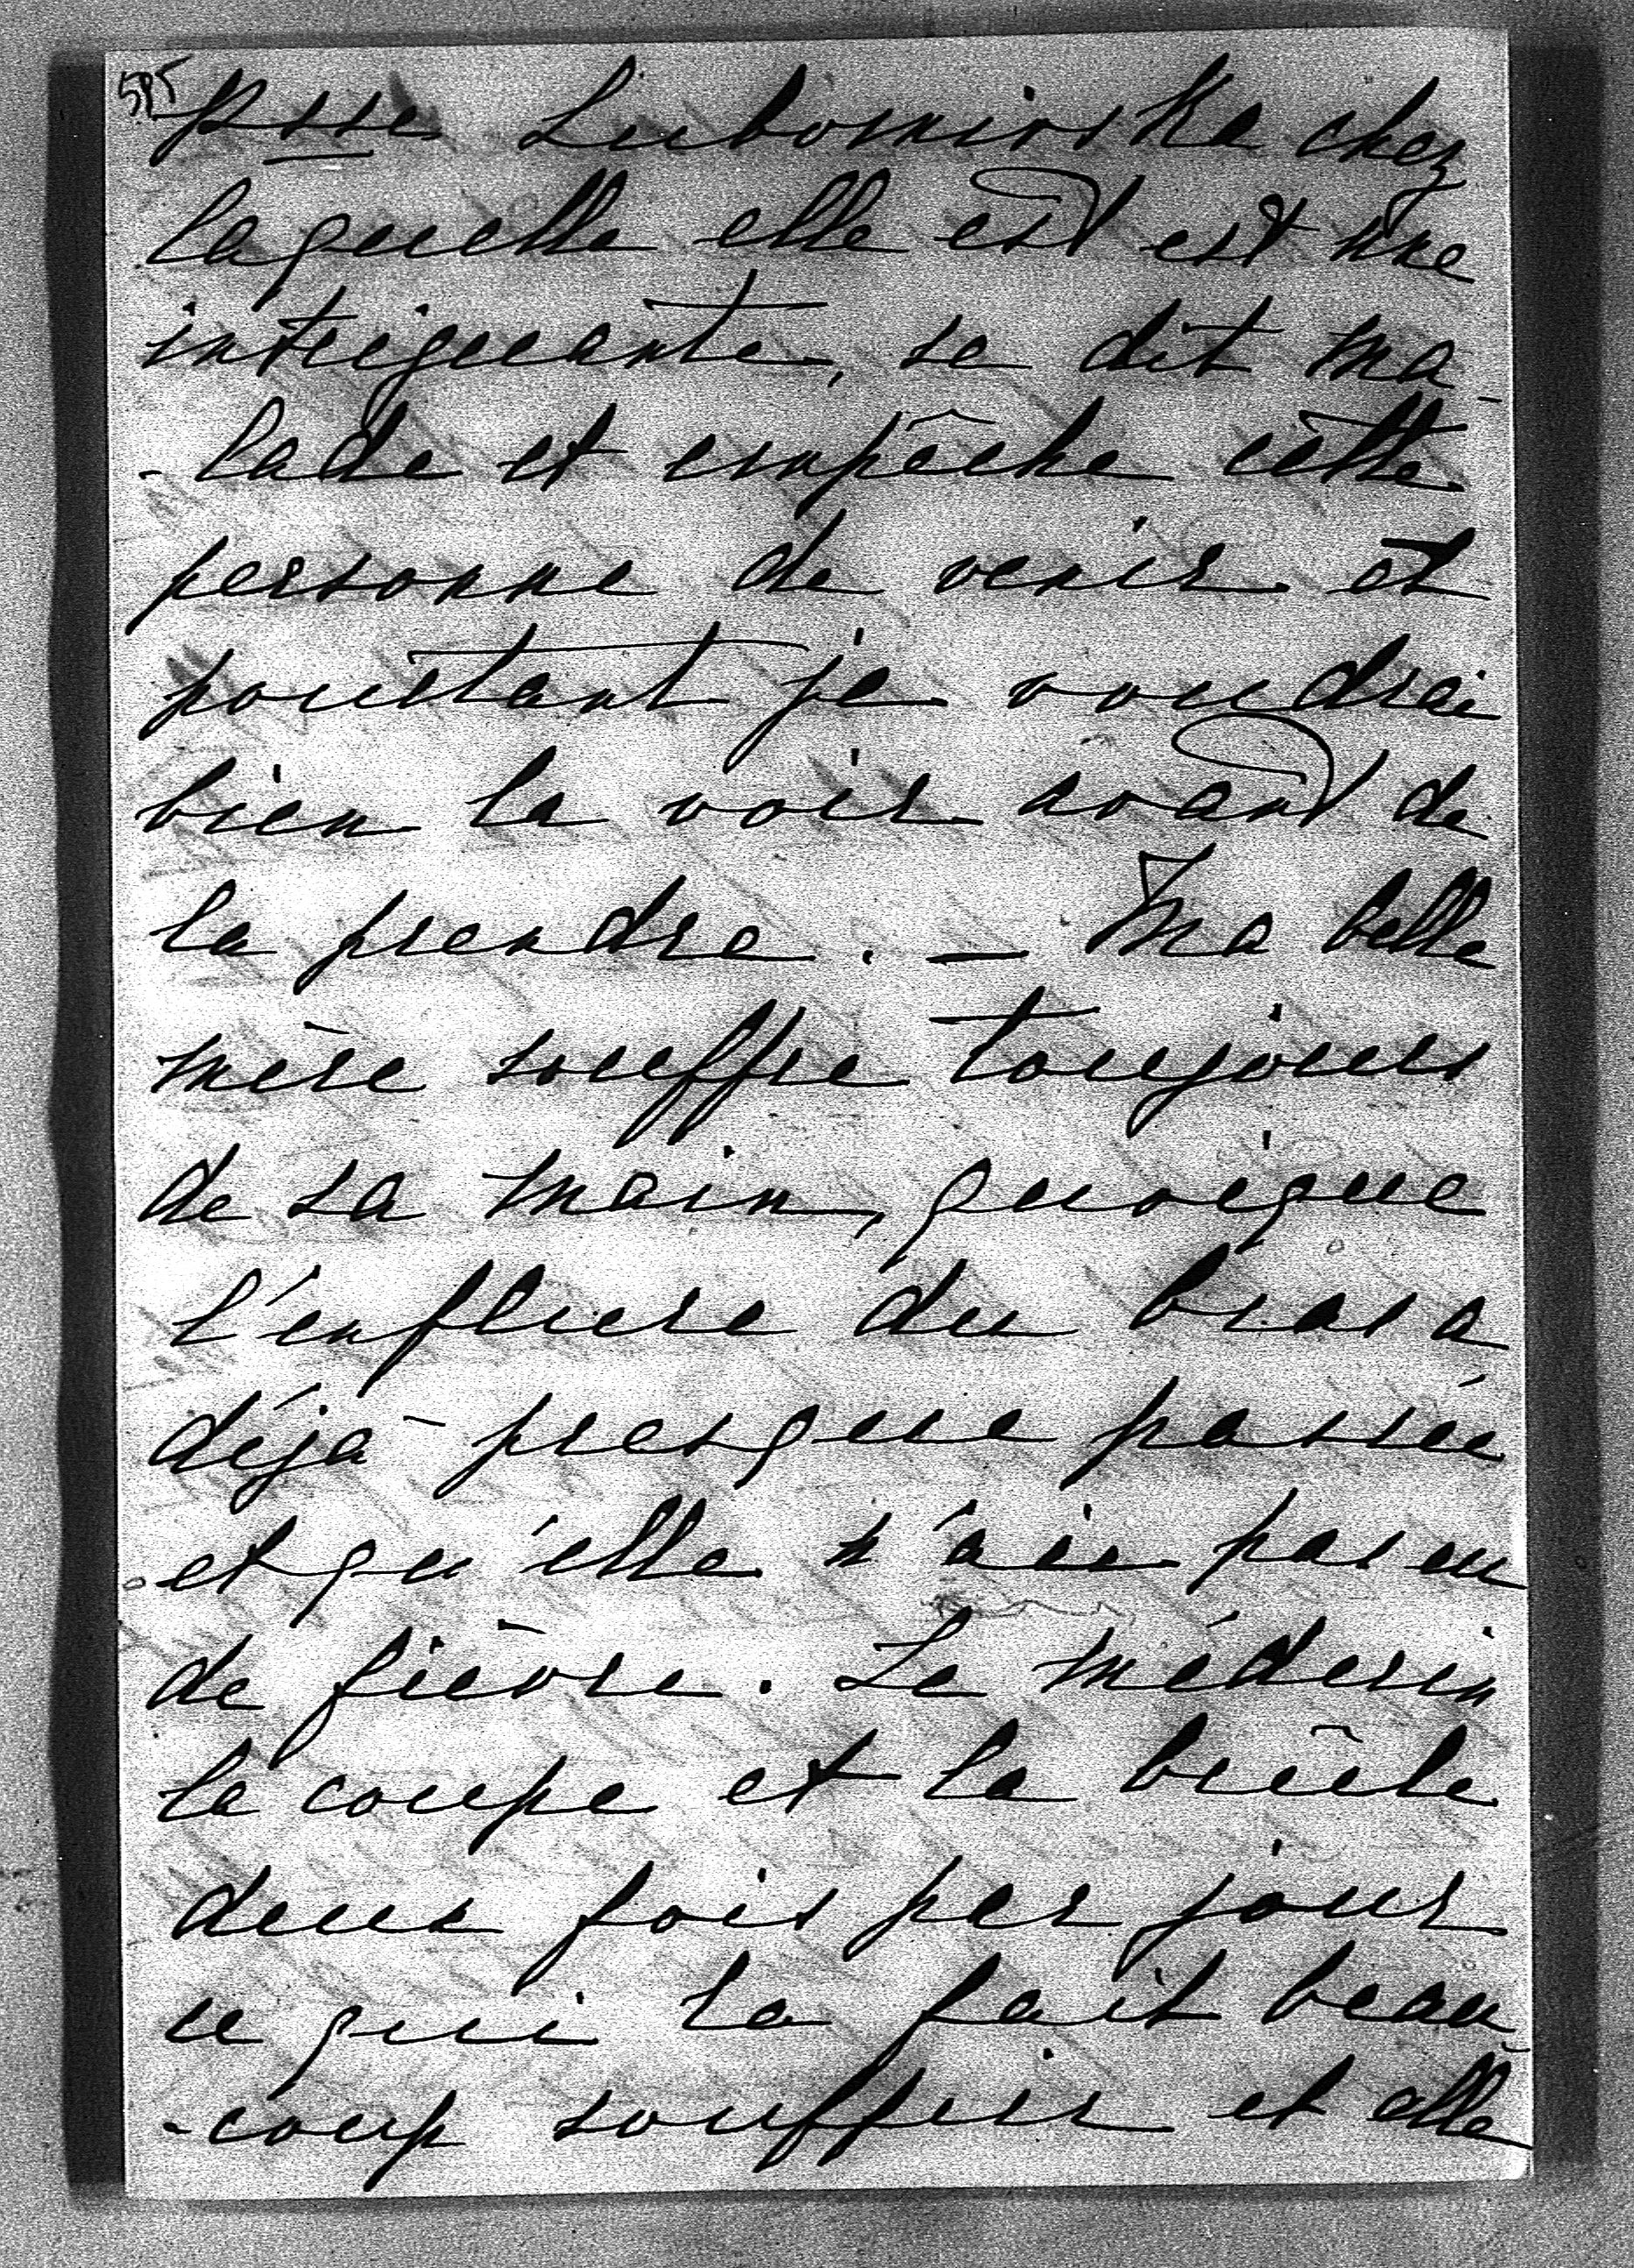 595
Psse Lubomirska chez
laquelle elle est est une
intriguante, se dit ma-
-lade et empêche cette
personne de venir et
pourtant je voudrai
bien la voir avant de
la prendre. — Ma belle
mère souffre toujours
de sa main, quoique
l'enflure du bras a
déjà presque passée
et qu'elle n'aie pas eu
de fièvre. Le médecin
la coupe et la brûle
deux fois par jour
ce qui la fait beau-
-coup souffrir et elle